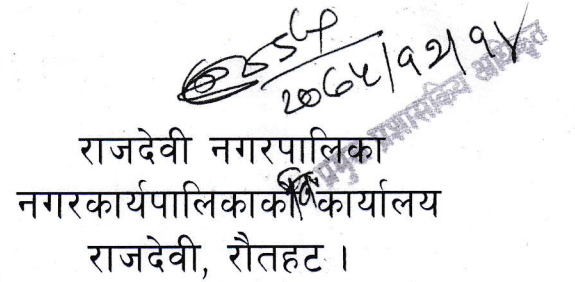 २०७५/१२/१४
प्रमुख प्रशासकिय अधिकृत
राजदेवी नगरपालिका
नगरकार्यपालिकाको कार्यालय
राजदेवी, रौतहट ।